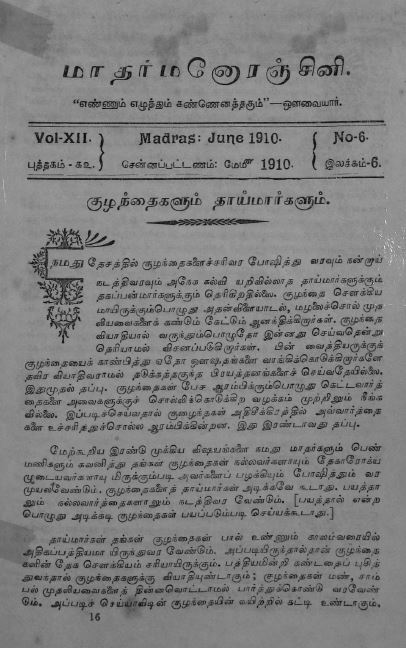 மாதர்மனோரஞ்சினி.
“எண்ணும் எழுத்தும் கண்ணெனத்தகும்”—ஔவையார்.
Vol-XII. Madras: June 1910. No-6.
புத்தகம் - கஉ. சென்னப்பட்டணம்: மேமீ 1910. இலக்கம்-6.
குழந்தைகளும் தாய்மார்களும்.
நமது தேசத்தில் குழந்தைகளைச்சரிவர போஷித்து வரவும் நன்றாய்
நடத்திவரவும் அநேக கல்வி யறிவில்லாத தாய்மார்களுக்கும்
தகப்பன்மார்களுக்கும் தெரிகிறதில்லை. குழந்தை சௌக்கிய
மாயிருக்கும்பொழுது அதன்விளையாடல், மழலைச்சொல் முத
லியவைகளைக் கண்டும் கேட்டும் ஆனந்திக்கிறார்கள். குழந்தை
வியாதியால் வருந்தும்பொழுதோ இன்னது செய்வதென்று
தெரியாமல் விசனப்படுகிறார்கள். பின் வைத்தியருக்குக்
குழந்தையைக் காண்பித்து ஏதோ ஔஷதங்களை வாங்கிக்கொடுக்கிறார்களே
தவிர வியாதிவராமல் தடுக்கத்தகுந்த பிரயத்தனங்களைச் செய்வதேயில்லை.
இதுமுதல் தப்பு. குழந்தைகள் பேச ஆரம்பிக்கும்பொழுது கெட்டவார்த்
தைகளை அவைகளுக்குச் சொல்லிக்கொடுக்கிற வழக்கம் முற்றிலும் நீங்க
வில்லை. இப்படிச்செய்வதால் குழைந்தகள் அதிசீக்கிரத்தில் அவ்வார்த்தை
களை உச்சரித்துச்சொல்ல ஆரம்பிக்கின்றன. இது இரண்டாவது தப்பு.
மேற்கூறிய இரண்டு முக்கிய விஷயங்களை நமது மாதர்களும் பெண்
மணிகளும் கவனித்து தங்கள் குழந்தைகள் நல்லவர்களாயும் தேகாரோக்ய
முடையவர்களாயு மிருக்கும்படி அவர்களைப் பழக்கியும் போஷித்தும் வர
முயலவேண்டும். குழந்தைகளைத் தாய்மார்கள் அடிக்கவே கூடாது. பயத்தா
லும் நல்லவார்த்தைகளாலும் நடத்திவர வேண்டும். [பயத்தால் என்ற
பொழுது அடிக்கடி குழந்தைகள் பயப்படும்படி செய்யக்கூடாது.]
தாய்மார்கள் தங்கள் குழந்தைகள் பால் உண்ணும் காலம்வரையில்
அதிகப்பத்தியமா யிருந்துவர வேண்டும். அப்படியிருந்தால்தான் குழந்தை
களின் தேக சௌக்கியம் சரியாயிருக்கும். பத்தியமின்றி கண்டதைப் புசித்
துவந்தால் குழந்தைகளுக்கு வியாதியுண்டாகும்; குழந்தைகள் மண், சாம்
பல் முதலியவைகளைத் தின்னவொட்டாமல் பார்த்துக்கொண்டு வரவேண்
டும். அப்படிச் செய்யாவிடின் குழந்தையின் வயிற்றில் கட்டி உண்டாகும்,
16